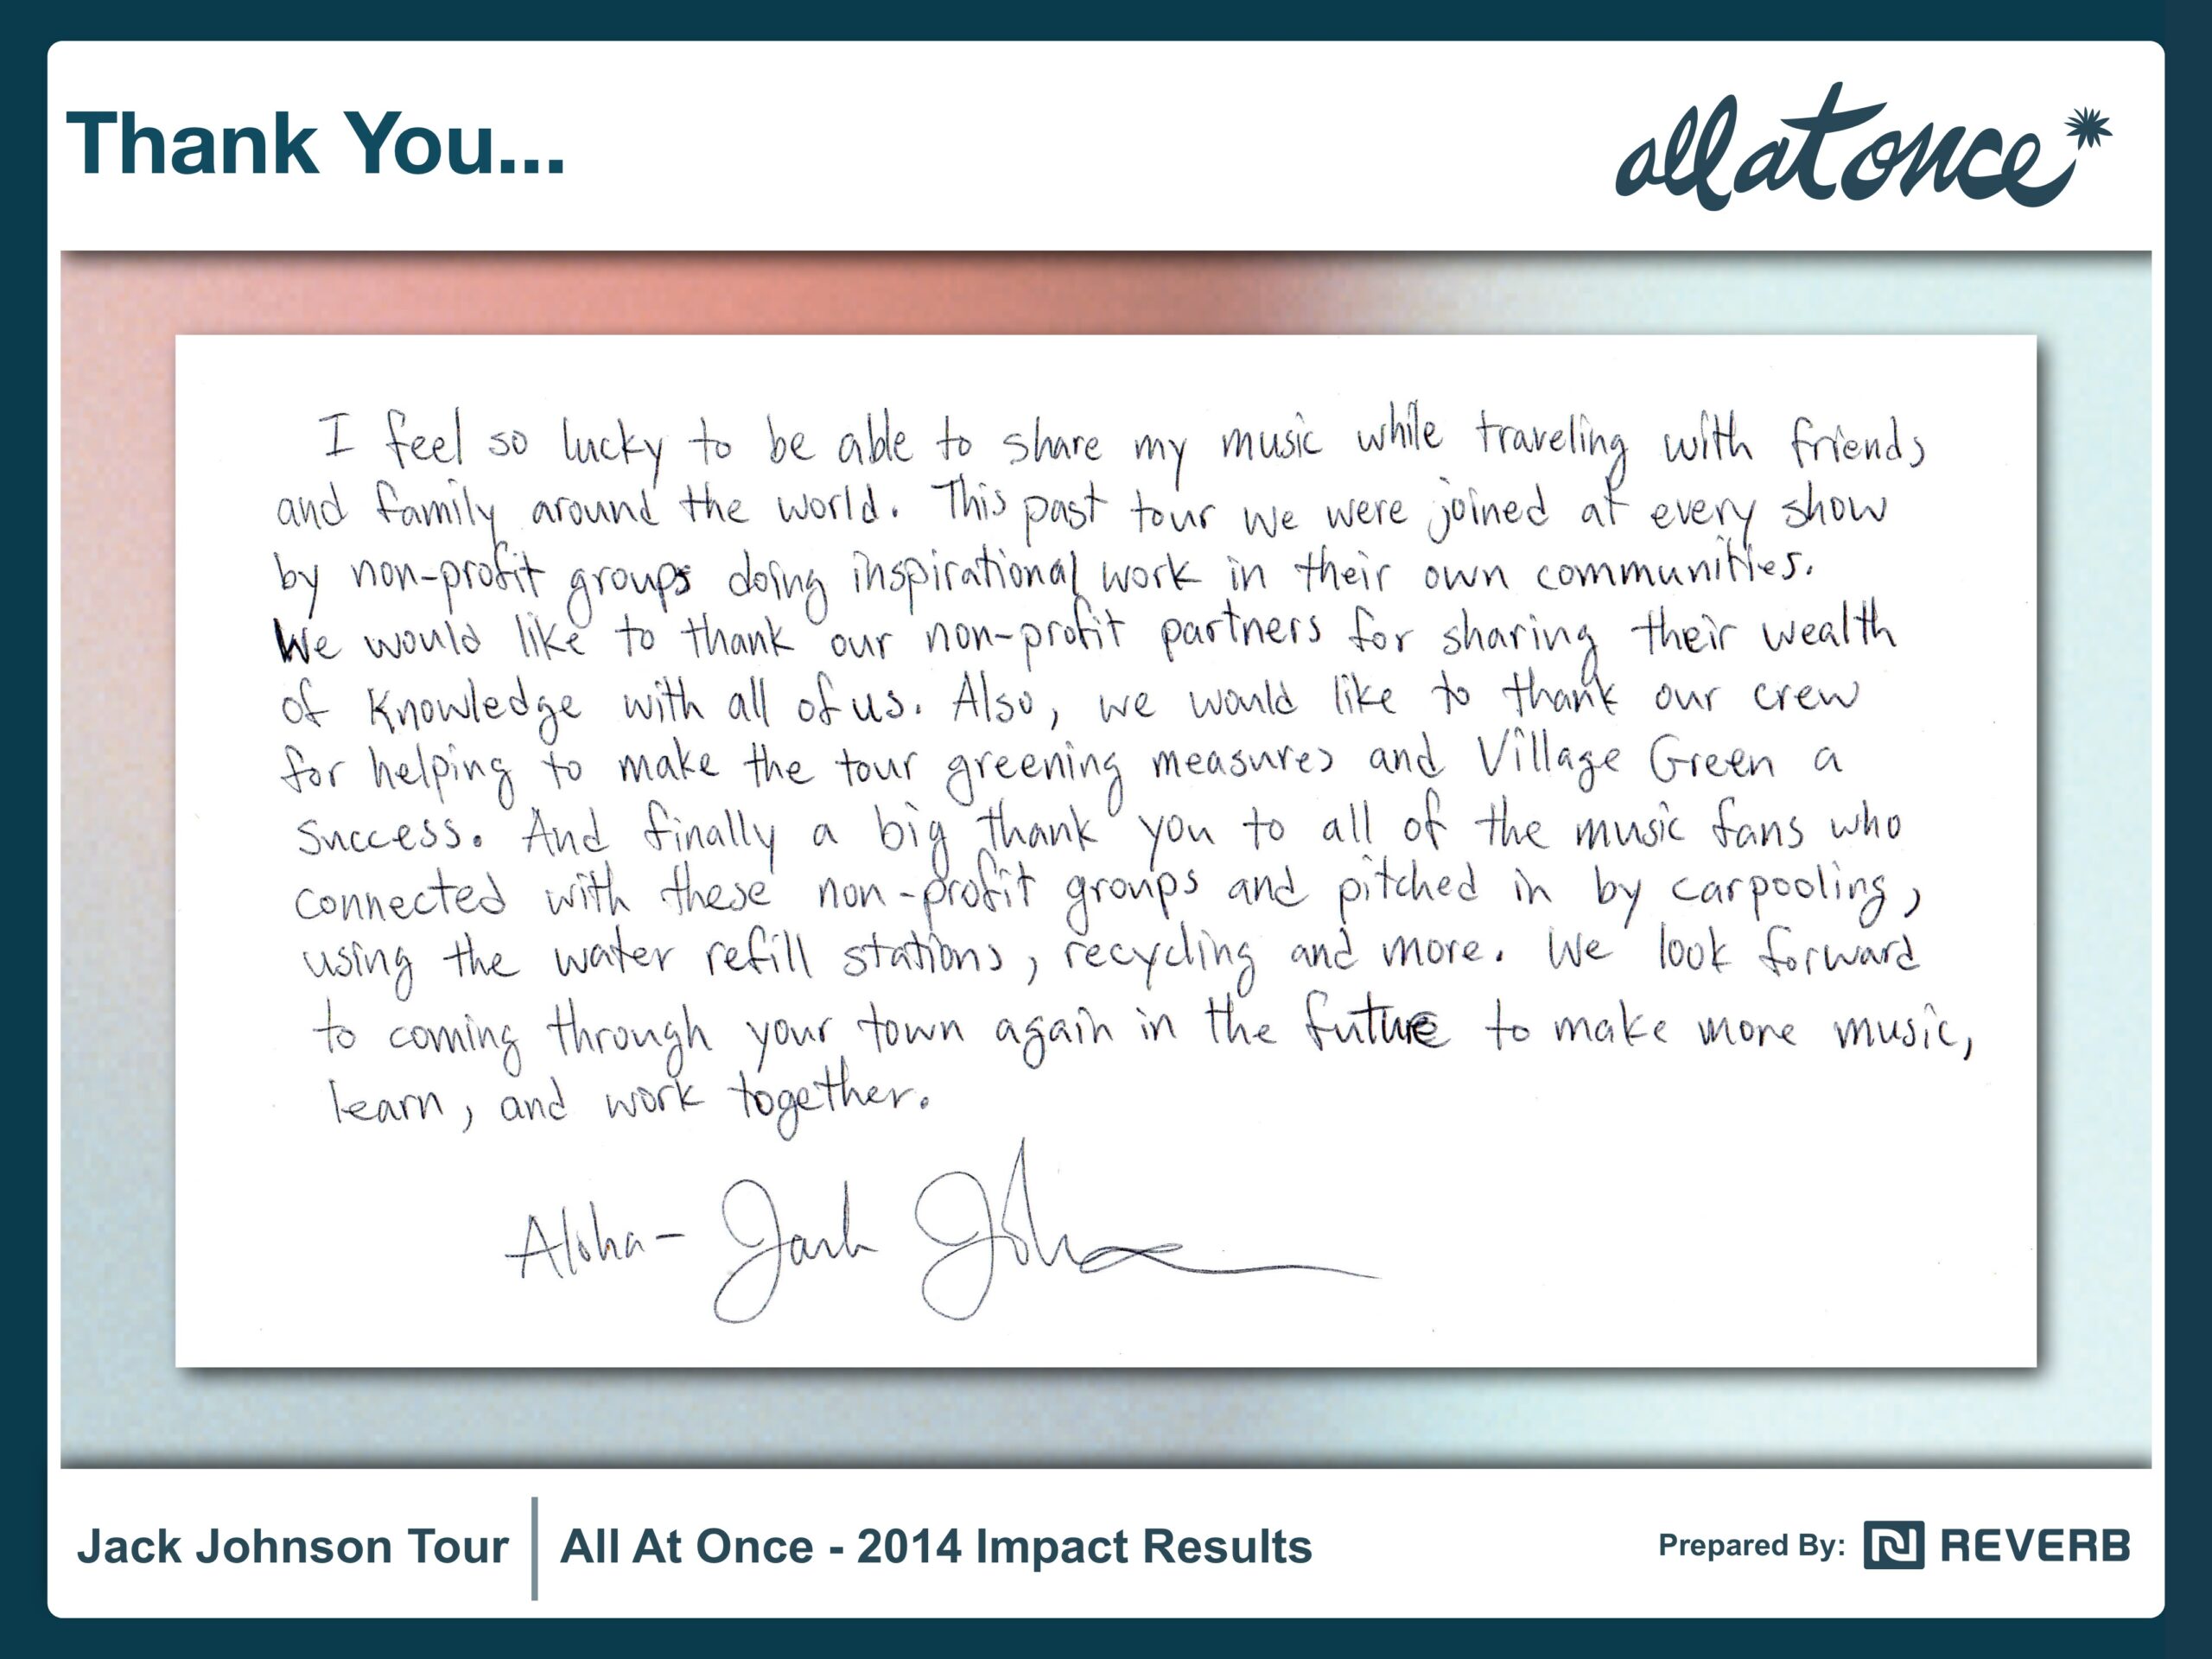 Thank You...
all at once*
I feel so lucky to be able to share my music while traveling with friends
and family around the world. This past tour we were joined at every show
by non-profit groups doing inspirational work in their own communities.
We would like to thank our non-profit partners for sharing their wealth
of Knowledge with all of us. Also, we would like to thank our crew
for helping to make the tour greening measures and Village Green a
success. And finally a big thank you to all of the music fans who
connected with these non-profit groups and pitched in by carpooling,
using the water refill stations, recycling and more. We look forward
to coming through your town again in the future to make more music,
learn, and work together.
Aloha- Jack Johnson
Jack Johnson Tour | All At Once - 2014 Impact Results
Prepared By: REVERB